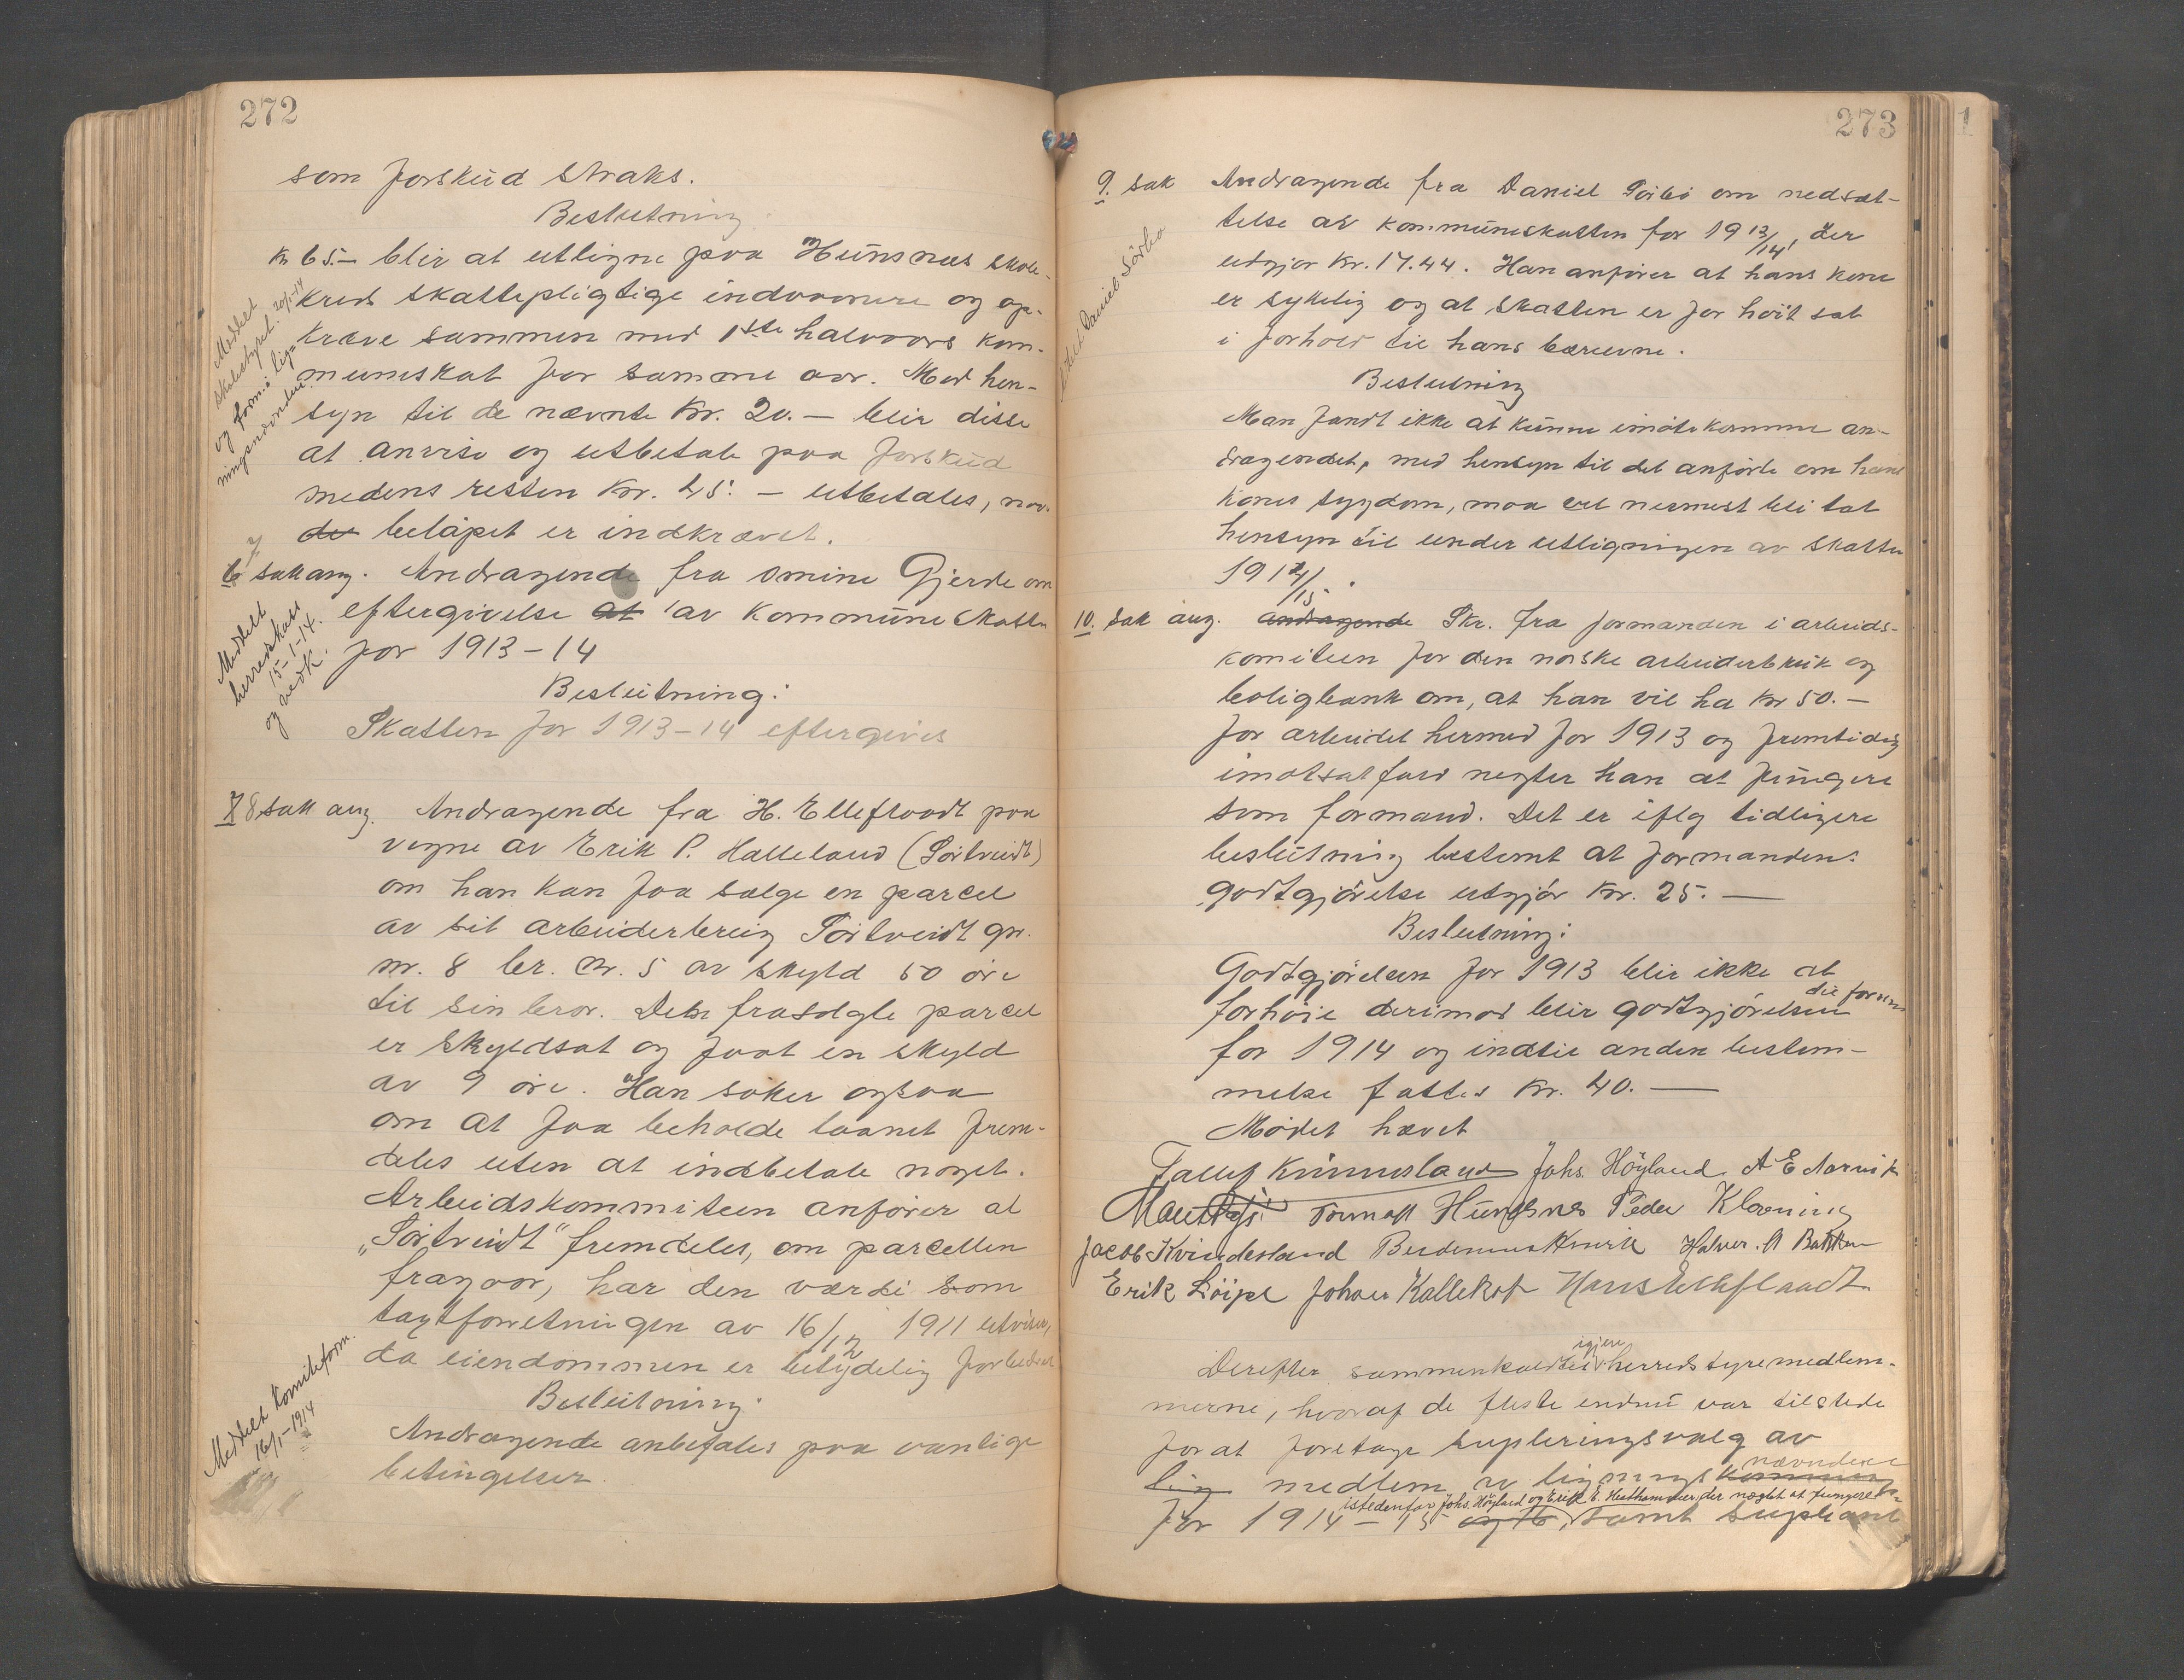 272
som forskud straks.
Beslutning
Kr 65.– blir at utligne paa Hunsnæs skole-
kreds skattepligtige indvaanere og op-
kræve sammen med 1ste halvaars kom-
muneskat for samme aar. Med hen-
syn til de nævnte Kr. 20.– blir disse
at anvise og utbetale paa forskud
medens resten Kr. 45.– utbetales, naar
de beløpet er indkrævet.
Meddelt
skolestyret 20/1-14
og form. i lig-
ningsnævnden.
7
6 sak ang. Andragende fra Omine Gjerde om
eftergivelse at av kommuneskatten
for 1913–14
Meddelt
herredskass
15-1-14.
og vedk.
Beslutning:
Skatten for 1913–14 eftergives
7 8 sak ang. Andragende fra H. Elleflaadt paa
vegne av Erik P. Halleland (Sørtveidt)
om han kan faa sælge en parcel
av sit arbeiderbruk Sørtveidt gr.
nr. 8 br. nr. 5 av skyld 50 øre
til sin bror. Den frasolgte parcel
er skyldsat og faat en skyld
av 9 øre. Han søker ogsaa
om at faa beholde laanet frem-
deles uten at indbetale noget.
Arbeidskommiteen anfører at
„Sørtveidt" fremdeles, om parcellen
fragaar, har den værdi som
taxtforretningen av 16/12 1911 utviser,
da eiendommen er betydelig forbedret
Beslutning:
Andragende anbefales paa vanlige
betingelser.
Meddelt Komiteform.
16/1-1914
273
9. sak Andragende fra Daniel Sörbö om nedsæt-
telse av kommuneskatten for 1913/14, der
utgjør Kr. 17.44. Han anfører at hans kone
er sykelig og at skatten er for höit sat
i forhold til hans bæreevne.
Meddelt Daniel Sörbø
Beslutning
Man fandt ikke at kunne imøtekomme an-
dragendet, med hensyn til det anførte om hans
kones sygdom, maa det nærmest bli tat
hensyn til under utligningen av skatten
1914/15.
10. sak ang. andragende Skr. fra formanden i arbeids-
komiteen for den norske arbeiderbruk og
boligbank om, at han vil ha Kr 50.–
for arbeidet hermed for 1913 og fremtidig
imotsat fald negter han at fungere
som formand. Det er iflg tidligere
beslutning bestemt at formandens
godtgjörelse utgjör Kr. 25.–
Beslutning:
Godtgjörelsen for 1913 blir ikke at
forhöie derimod blir godtgjörelsen til formn
for 1914 og indtil anden bestem-
melse fattes Kr. 40.–
Mödet hævet
Tallef Kinnesland Johs. Höyland A E Aarvik
Tormod Hungsnes Peder Klovning
Jacob Kvindesland Halvor. A Bakken
Erik Löipe Johan Kallekot Hans Elleflaadt
Derefter sammenkaldtes igjen herredstyremedlem-
merne, hvoraf de fleste endnu var tilstede
for at foretage supleringsvalg av
lig medlem av ligningskommis nævnden
for 1914–15 og 16, istedenfor Johs. Höyland og Erik E. Hesthammer, der nægtet at fungere samt supleant